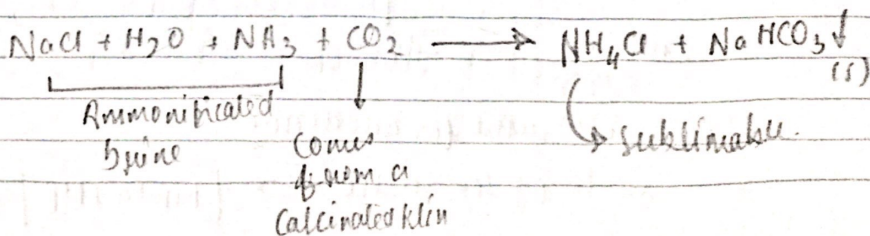 NaCl + H2O + NH3 + CO2 ⟶ NH4Cl + NaHCO3↓
(s)
Ammonificated
brine
Comes
from a
Calcinated klin
Sublimable.